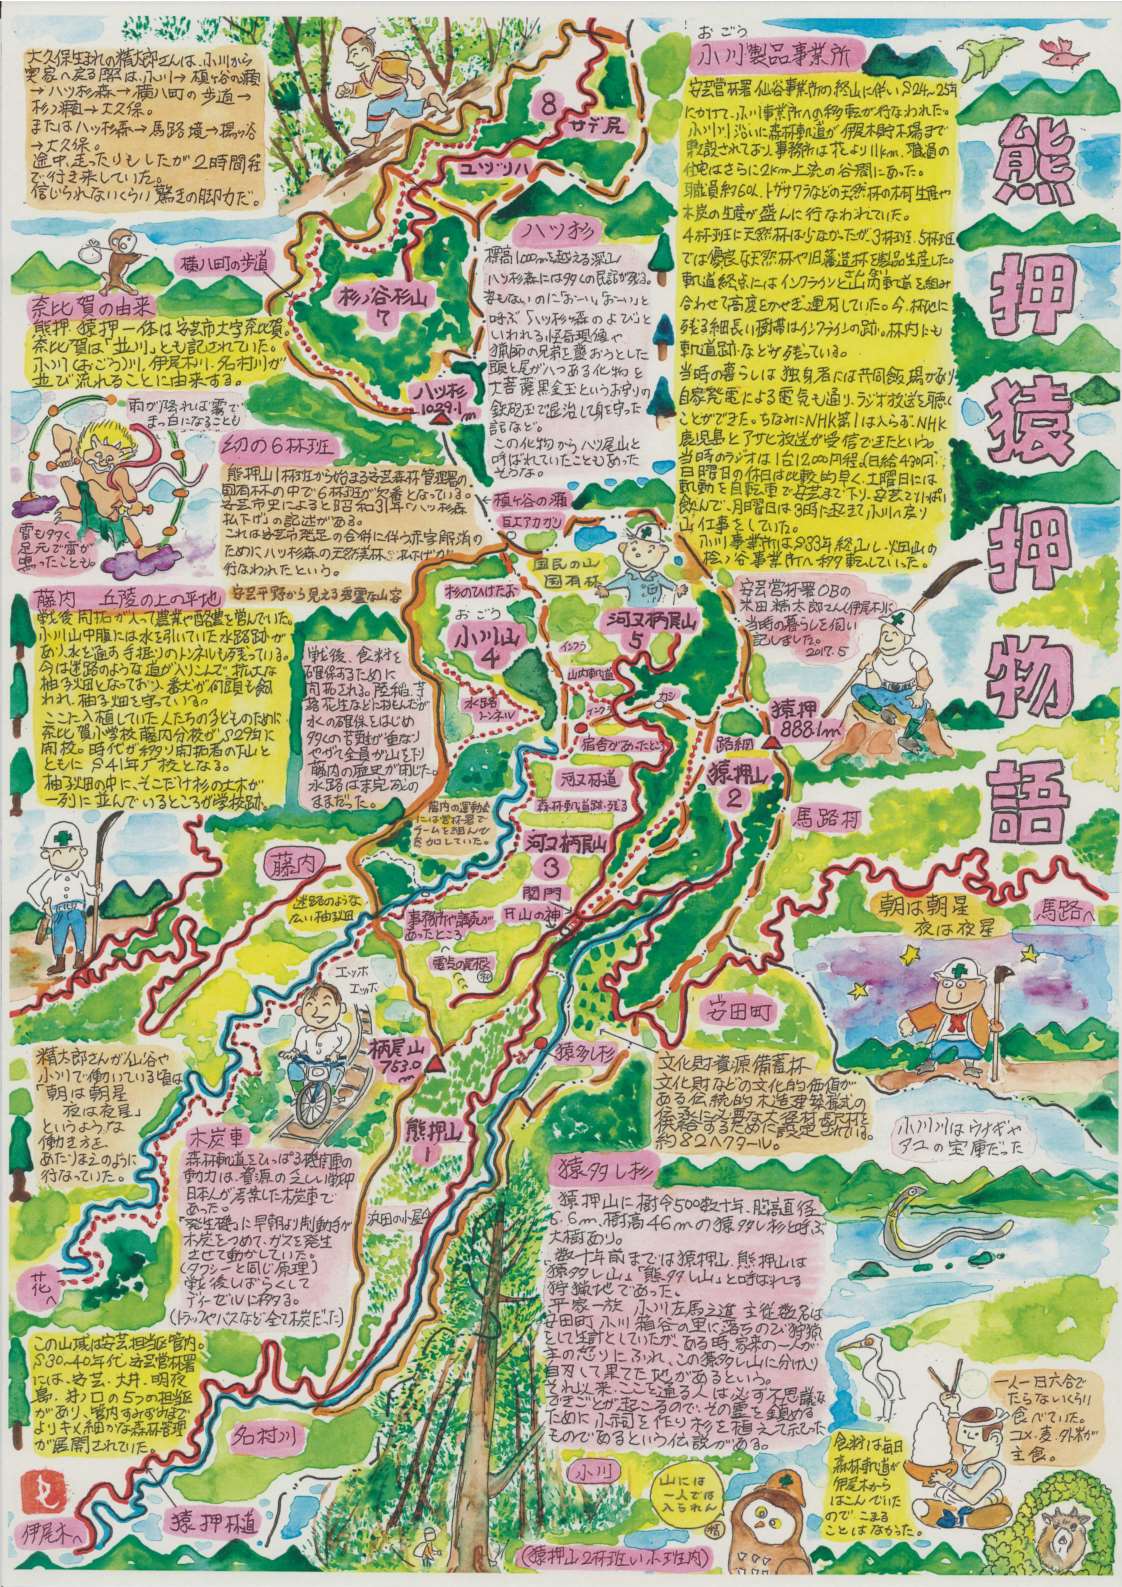 熊押猿押物語
大久保生まれの精太郎さんは、小川から
実家へ戻る際は、小川→槙ヶ谷の瀬
→八ツ杉森→横八町の歩道→
杉ノ瀬→大久保。
または八ツ杉森→馬路境→
→大久保。
途中、走ったりもしたが2時間程
で行き来していた。
信じられないくらい驚きの脚力だ。
おごう
小川製品事業所
安芸営林署仙谷事業所の終山に伴い、S24~25年
にかけて、小川事業所への移転が行なわれた。
小川川沿いに森林軌道が伊尾木貯木場まで
敷設されており、事務所は花より11km、職員の
住宅はさらに2km上流の谷間にあった。
職員約60人、トガサワラなどの天然林の木材生産や
木炭の生産が盛んに行なわれていた。
4林班に天然林は少なかったが、3林班、5林班
では優良な天然林や旧藩造林を製品生産した。
軌道終点にはインクラインと山内軌道を組み
さんない
合わせて高度をかせぎ、運材していた。今、林地に
残る細長い樹帯はインクラインの跡。林内にも
軌道跡などが残っている。
当時の暮らしは独身者には共同飯場があり
自家発電による電気も通り、ラジオ放送を聴く
ことができた。ちなみにNHK第1は入らず、NHK
鹿児島とアサヒ放送が受信できたという。
当時のラジオは1台12,000円程。(日給430円)
日曜日の休日は比較的早く、土曜日には
軌動を自転車で安芸まで下り、安芸でいっぱい
飲んで、月曜日は3時に起きて小川へ戻り
山仕事をしていた。
小川事業所はS33年終山し、畑山の
桧ノ谷事業所へ移転していった。
8
サデ尻
ユヅリハ
横八町の歩道
杉ノ谷杉山
7
八ツ杉
1029.1
m
八ツ杉
標高1,000mを越える深山
八ツ杉森には多くの民話が残る。
姿もないのに「おーい、おーい」と
呼ぶ「八ツ杉ヶ森のよび」と
いわれる怪奇現象や
猟師の兄弟を襲おうとした
頭と尾が八つある化物を
大菩薩黒金玉というお守りの
鉄砲玉で退治して身を守った
話など。
この化物から八ツ尾山と
呼ばれていたこともあった
そうな。
奈比賀の由来
熊押、猿押一体は安芸市大字奈比賀。
奈比賀は「並川」とも記されていた。
小川(おごう)川、伊尾木川、名村川が
並び流れることに由来する。
雨が降れば霧で
まっ白になることも
雷もタタク
足元で雷が
鳴ったことも。
幻の6林班
熊押山1林班から始まる安芸森林管理署の
国有林の中で6林班が欠番となっている。
安芸市史によると昭和31年に「八ツ杉森
払下げ」の記述がある。
これは安芸市発足の合併に伴う赤字解消の
ために八ツ杉森の天然美林の払下げが
行なわれたという。
槙ヶ谷の瀬
巨エアカガシ
安芸平野から見える秀麗な山容
藤内 丘陵の上の平地
戦後、開拓が入って農業や酪農を営んでいた。
小川山中腹には水を引いていた水路跡が
あり、水を通す手掘りのトンネルも残っている。
今は迷路のような道が入りこんで、拡大な
柚子畑となっており、番犬が何頭も飼
われ、柚子畑を守っている。
ここに入植していた人たちの子どものために、
奈比賀小学校藤内分校がS29年に
開校。時代が移り開拓者の下山と
ともにS41年廃校となる。
柚子畑の中に、そこだけ杉の大木が
一列に並んでいるところが学校跡。
戦後、食料を
確保するために
開拓される。陸稲、芋
落花生などに挑むんだが
水の確保をはじめ
多くの苦難が重なり
やがて全員が山を下り
藤内の歴史が閉じた。
水路は未完成の
ままだった。
杉のひげたお
おごう
小川山
4
水路
トンネル
国民の山
国有林
河又柄尾山
5
インクラ
山内軌道
インクラ
カシ
宿舎があったとこ
河又林道
森林軌道跡残る
安芸営林署OBの
米田精太郎さん(伊尾木)に
当時の暮らしを伺い
記しました。
2017.5
猿押
888.1m
路網
猿押山
2
馬路村
藤内の運動会
には営林署で
チームを組んで
参加していた。
河又柄尾山
3
関門
山の神
藤内
迷路のような
広い柚畑
事務所や講売が
あったところ
電気の尾根
エッホ
エッホ
柄尾山
753.0
m
熊押山
1
浜田の小屋
安田町
猿多し杉
馬路へ
朝は朝星
夜は夜星
文化財資源備蓄林
文化財などの文化的価値が
ある伝統的木造建築様式の
伝承に必要な大径材、長材を
供給するために設定されている。
約82ヘクタール。
小川川はウナギや
アユの宝庫だった
精太郎さんが仙谷や
小川で働いている頃は
「朝は朝星
夜は夜星」
というような
働き方を
あたりまえのように
行なっていた。
木炭車
森林軌道をひっぱる機関車の
動力は、資源の乏しい戦中
日本人が考案した木炭車で
あった。
「発生礁」に早朝より制動手が
木炭をつめて、ガスを発生
させて動かしていた。
(タクシーと同じ原理)
戦後しばらくして
ディーゼルに移る。
(トラックやバスなど全て木炭だった)
花へ
猿多し杉
猿押山に樹令500数十年、胸高直径
6.6m、樹高46mの猿多し杉と呼ぶ
大樹あり。
数十年前までは猿押山、熊押山は
「猿多し山」「熊多し山」と呼ばれる
狩猟地であった。
平家一族 小川左馬之進 主従数名は
安田町 小川 箱谷の里に落ちのび狩猟
をして生計としていたが、ある時、家来の一人が
主の怒りにふれ、この猿多し山に分け入り
自刃して果てた地があるという。
それ以来、ここを通る人は必ず不思議な
できごとが起こるので、その霊を鎮める
ために小祠を作り杉を植えて示した
ものであるという伝説がある。
この山域は安芸担当区管内。
S30~40年代、安芸営林署
には、安芸・大井・明夜
島・井ノ口の5つの担当区
があり、管内すみずみまで
よりきめ細かな森林管理
が展開されていた。
名村川
猿押林道
伊尾木へ
小川
山には
一人では
入られん
(猿押山2林班い小班内)
一人一日六合で
たらないくらい
食べていた。
コメ・麦・外米が
主食。
食料は毎日
森林軌道が
伊尾木から
はこんでいた
ので、こまる
ことはなかった。